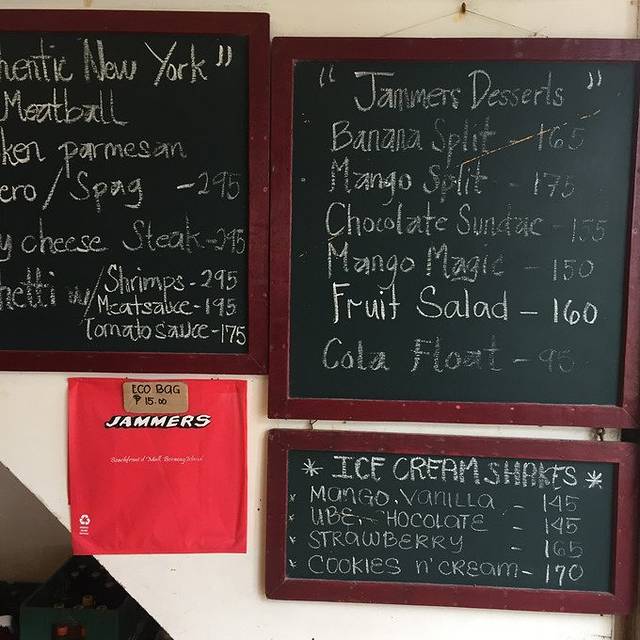 hentic New York"
Meatball
ken parmesan
ero/Spag - 295
y cheese Steak - 295
hetti w/ Shrimps - 295
Meatsauce - 195
Tomato sauce - 175
"Jammers Desserts"
Banana Split - 165
Mango Split - 175
Chocolate Sundae - 155
Mango Magic - 150
Fruit Salad - 160
Cola Float - 95
ECO BAG
₱ 15.00
JAMMERS
Beachfront d'Mall Boracay Island
* ICE CREAM SHAKES *
x MANGO, VANILLA - 145
x UBE, CHOCOLATE 145
x STRAWBERRY - 165
x COOKIES n' CREAM - 170